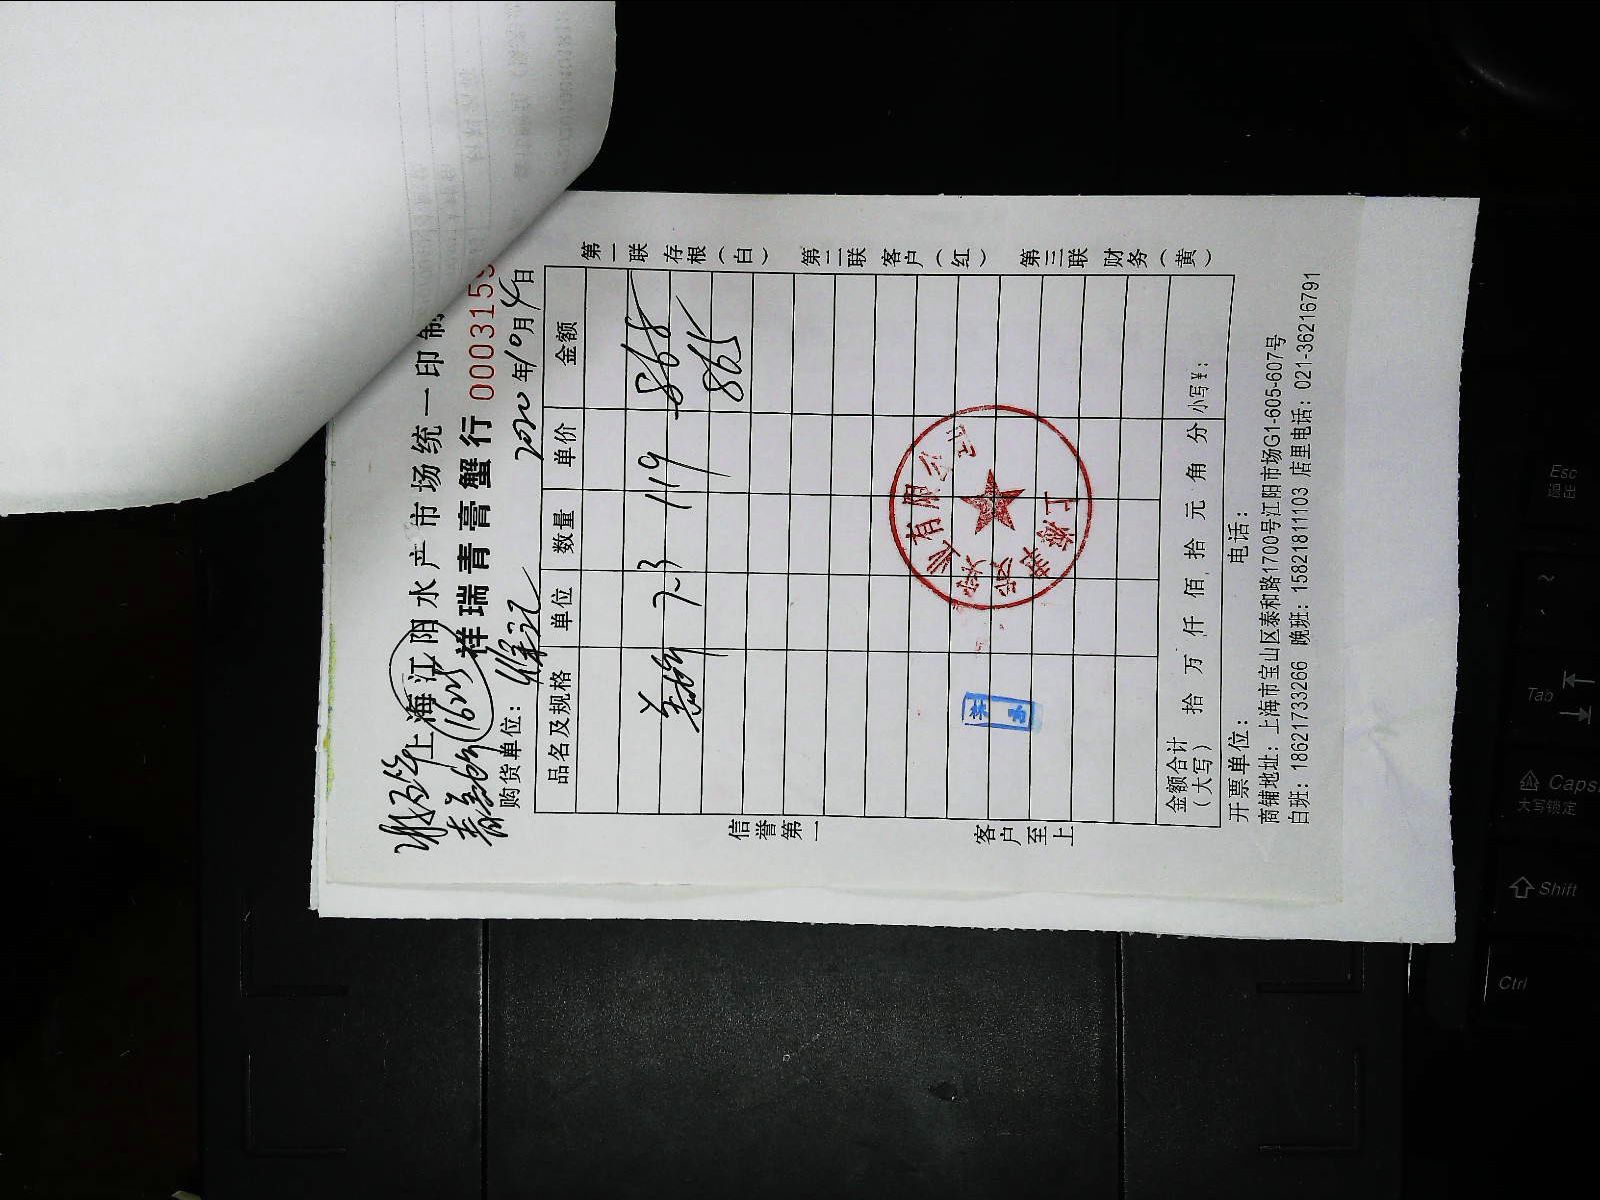 上海江阳水产市场统一印制
祥瑞青膏蟹行 000315
购货单位：徐记 2020年10月4日
品名及规格 单位 数量 单价 金额
7.3 119 868
865
金额合计（大写） 拾 万 仟 佰 拾 元 角 分 小写¥：
开票单位： 电话：
商铺地址：上海市宝山区泰和路1700号江阳市场G1-605-607号
白班：18621733266 晚班：15821811103 店里电话：021-36216791
第一联 存根（白） 第二联 客户（红） 第三联 财务（黄）
信誉第一 客户至上
业有限公司
上海
Esc
Tab
Caps
大写锁定
Shift
Ctrl